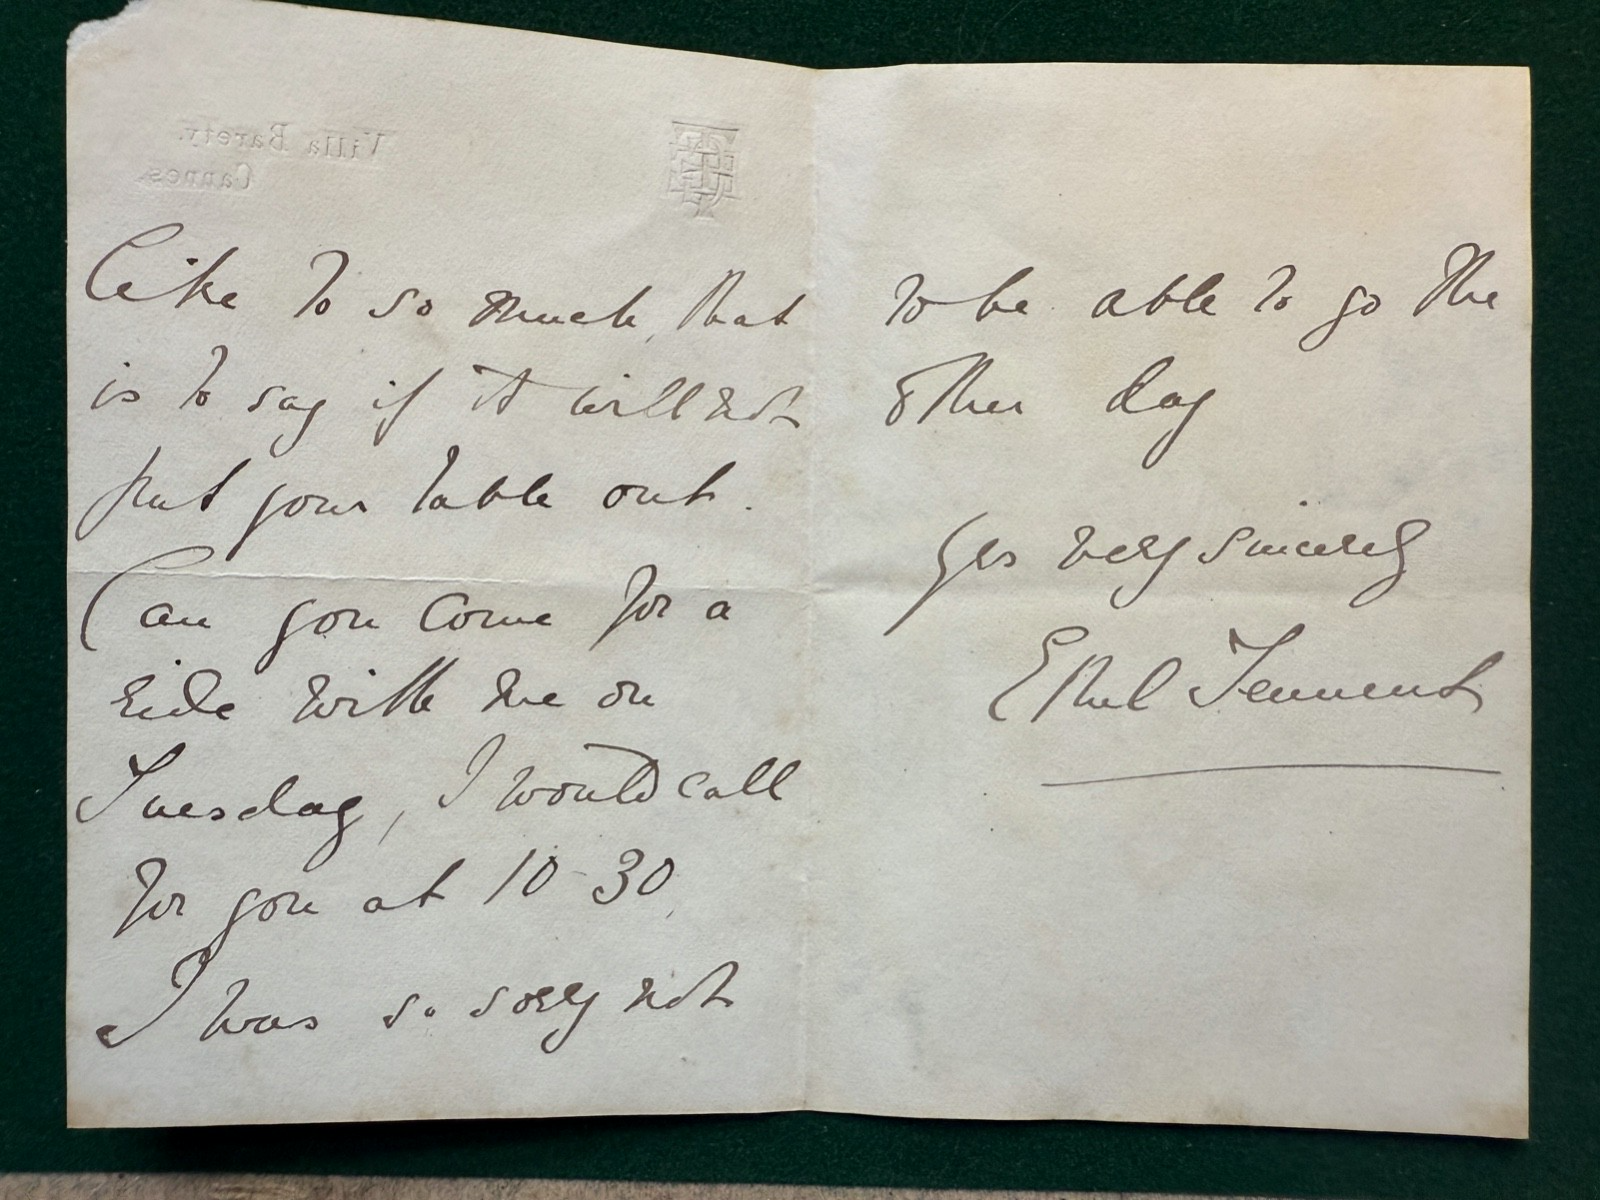 Villa Barety.
Cannes.
like to so much, that
is to say if it will not
put your table out.
Can you come for a
ride with me on
Tuesday, I would call
for you at 10-30,
I was so sorry not
to be able to go the
other day
Yrs very sincerely
Ethel Tennent